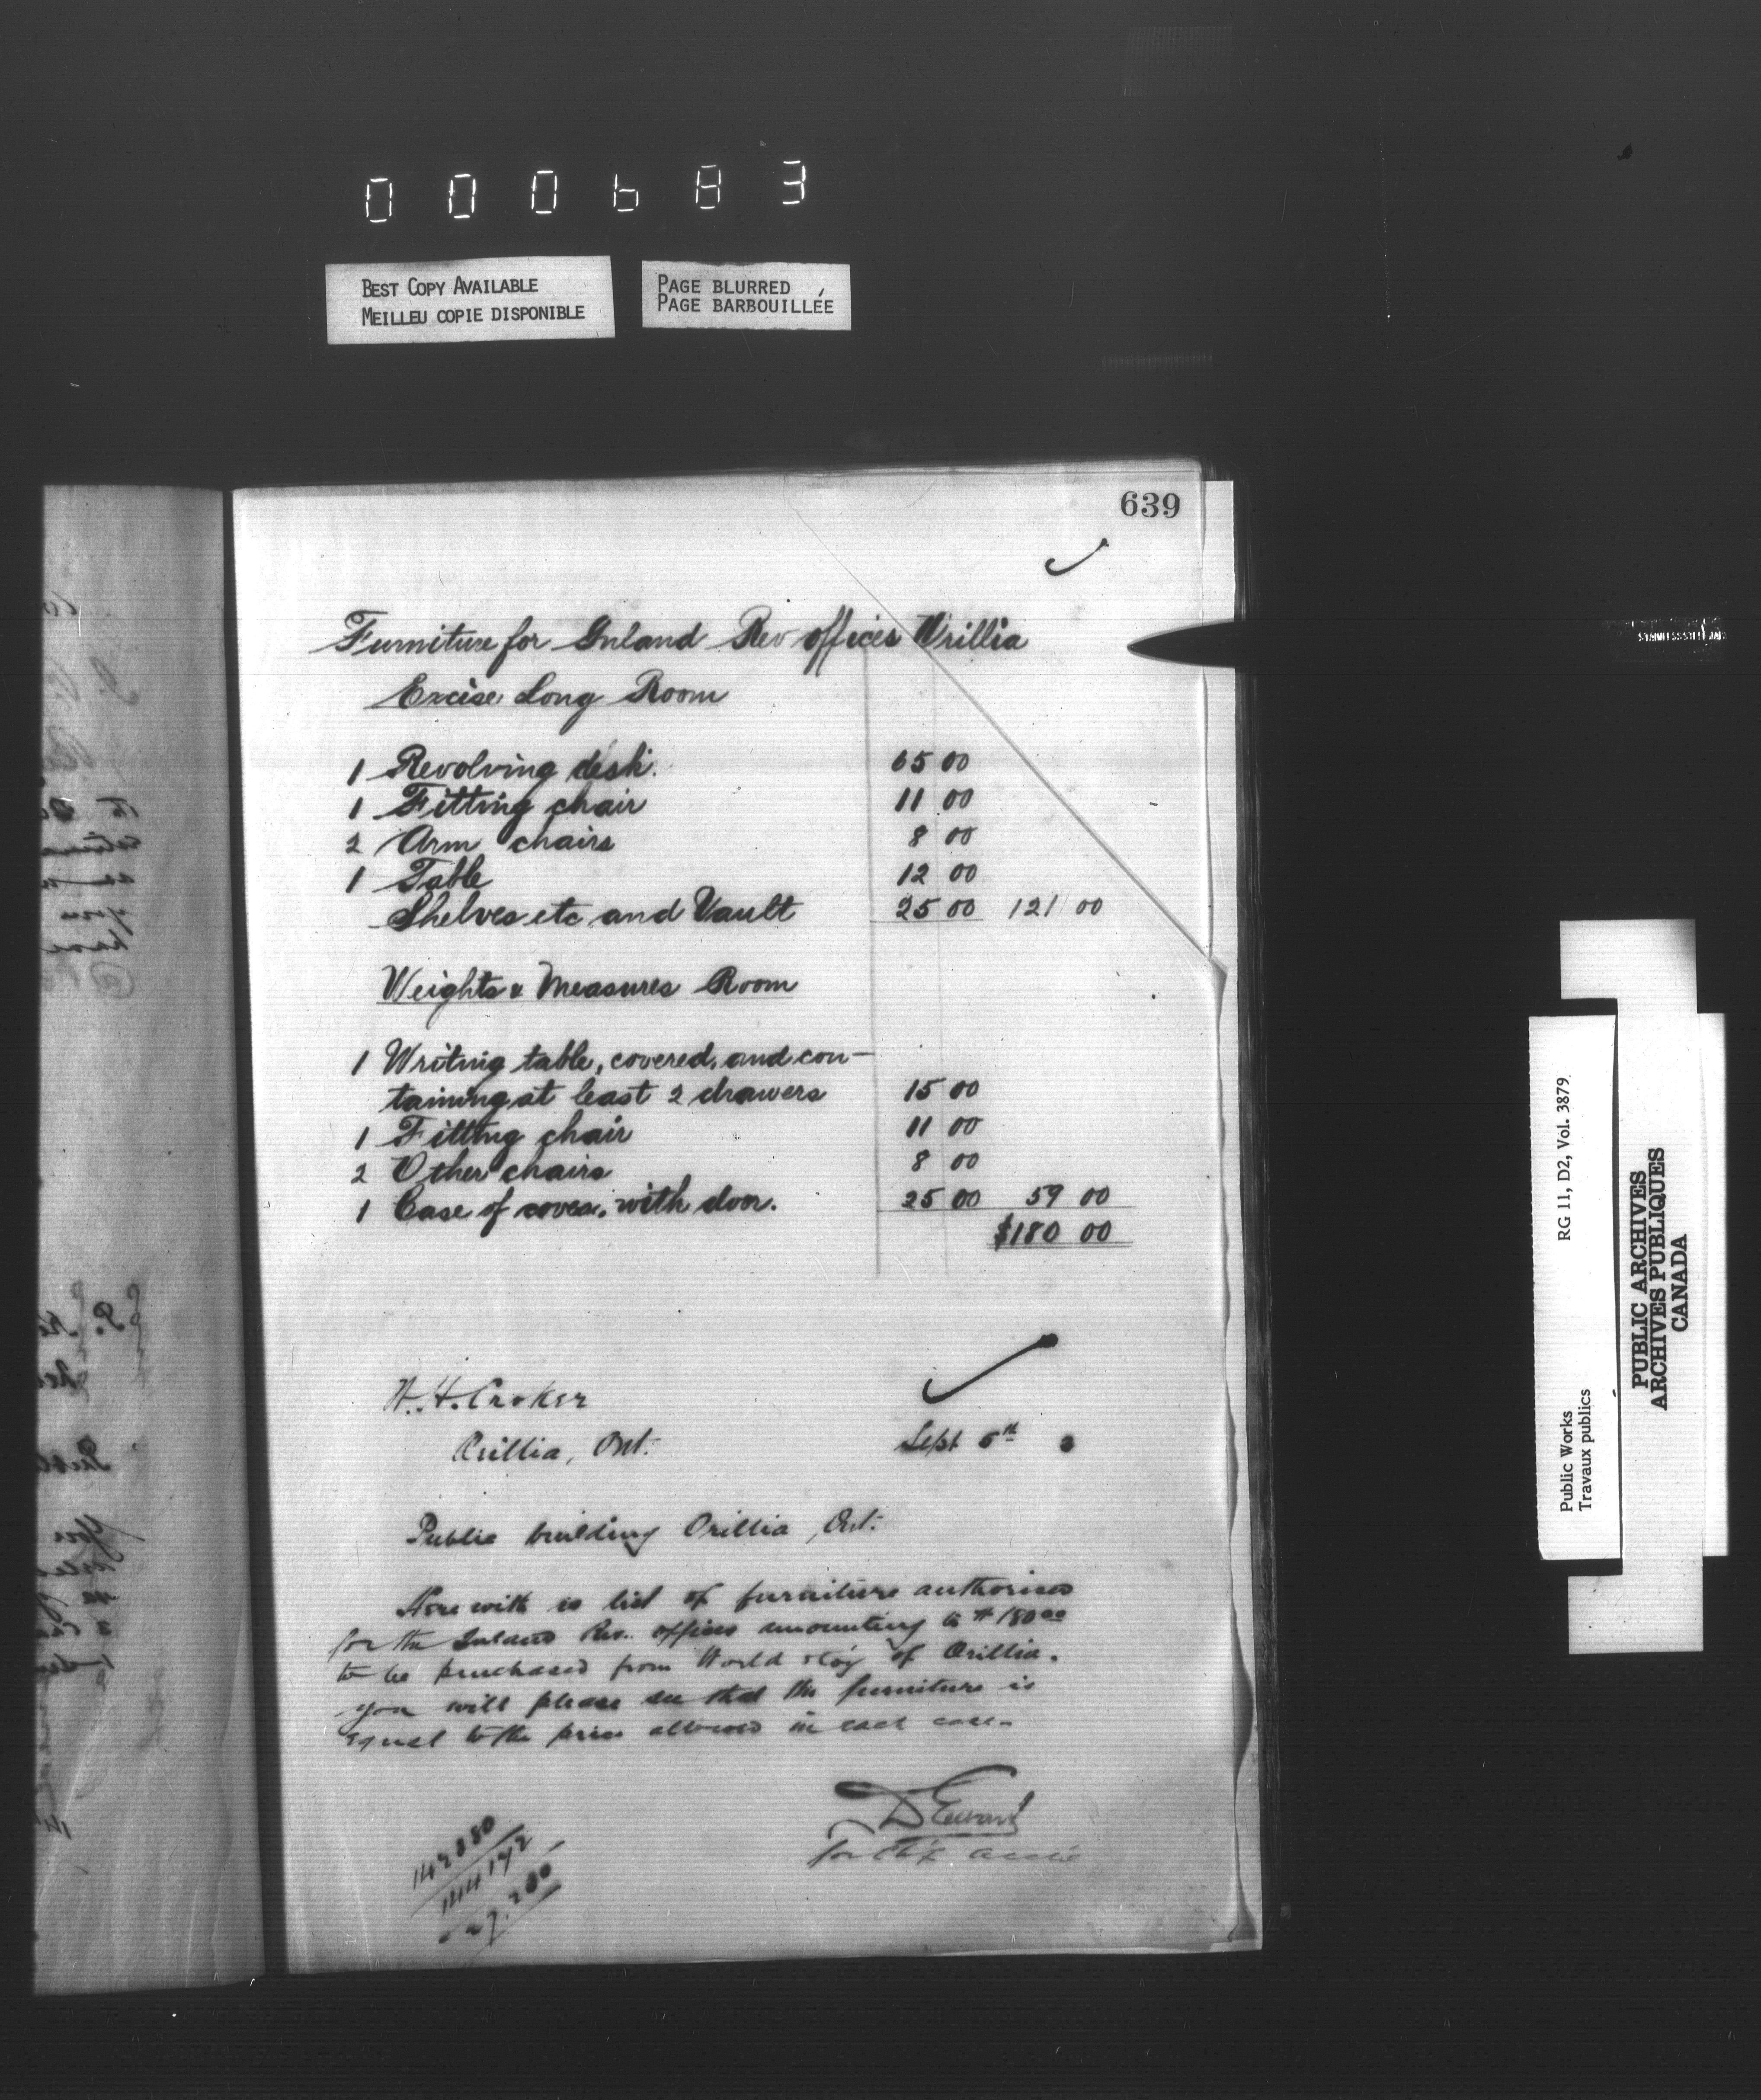 000683
BEST COPY AVAILABLE
MEILLEU COPIE DISPONIBLE
PAGE BLURRED
PAGE BARBOUILLÉE
639
Furniture for Inland Rev offices Orillia
Excise Long Room
1 Revolving desk. 65 00
1 Fitting chair 11 00
2 Arm chairs 8 00
1 Table 12 00
Shelves etc and Vault 25 00 121 00
Weights & Measures Room
1 Writing table, covered, and con-
taining at least 2 drawers 15 00
1 Fitting chair 11 00
2 Other chairs 8 00
1 Case of with door. 25 00 59 00
$180 00
W.H. Croker
Orillia, Ont. Sept 5th
Public building Orillia, Ont.
Herewith is list of furniture authorised
for the Inland Rev. offices amounting to $180.00
to be purchased from World of Orillia.
you will please see that the furniture is
equal to the price allowed in each case.
D Ewart
for Chf Archt
142880
144172
RG 11, D2, Vol. 3879
Public Works
Travaux publics
PUBLIC ARCHIVES
ARCHIVES PUBLIQUES
CANADA